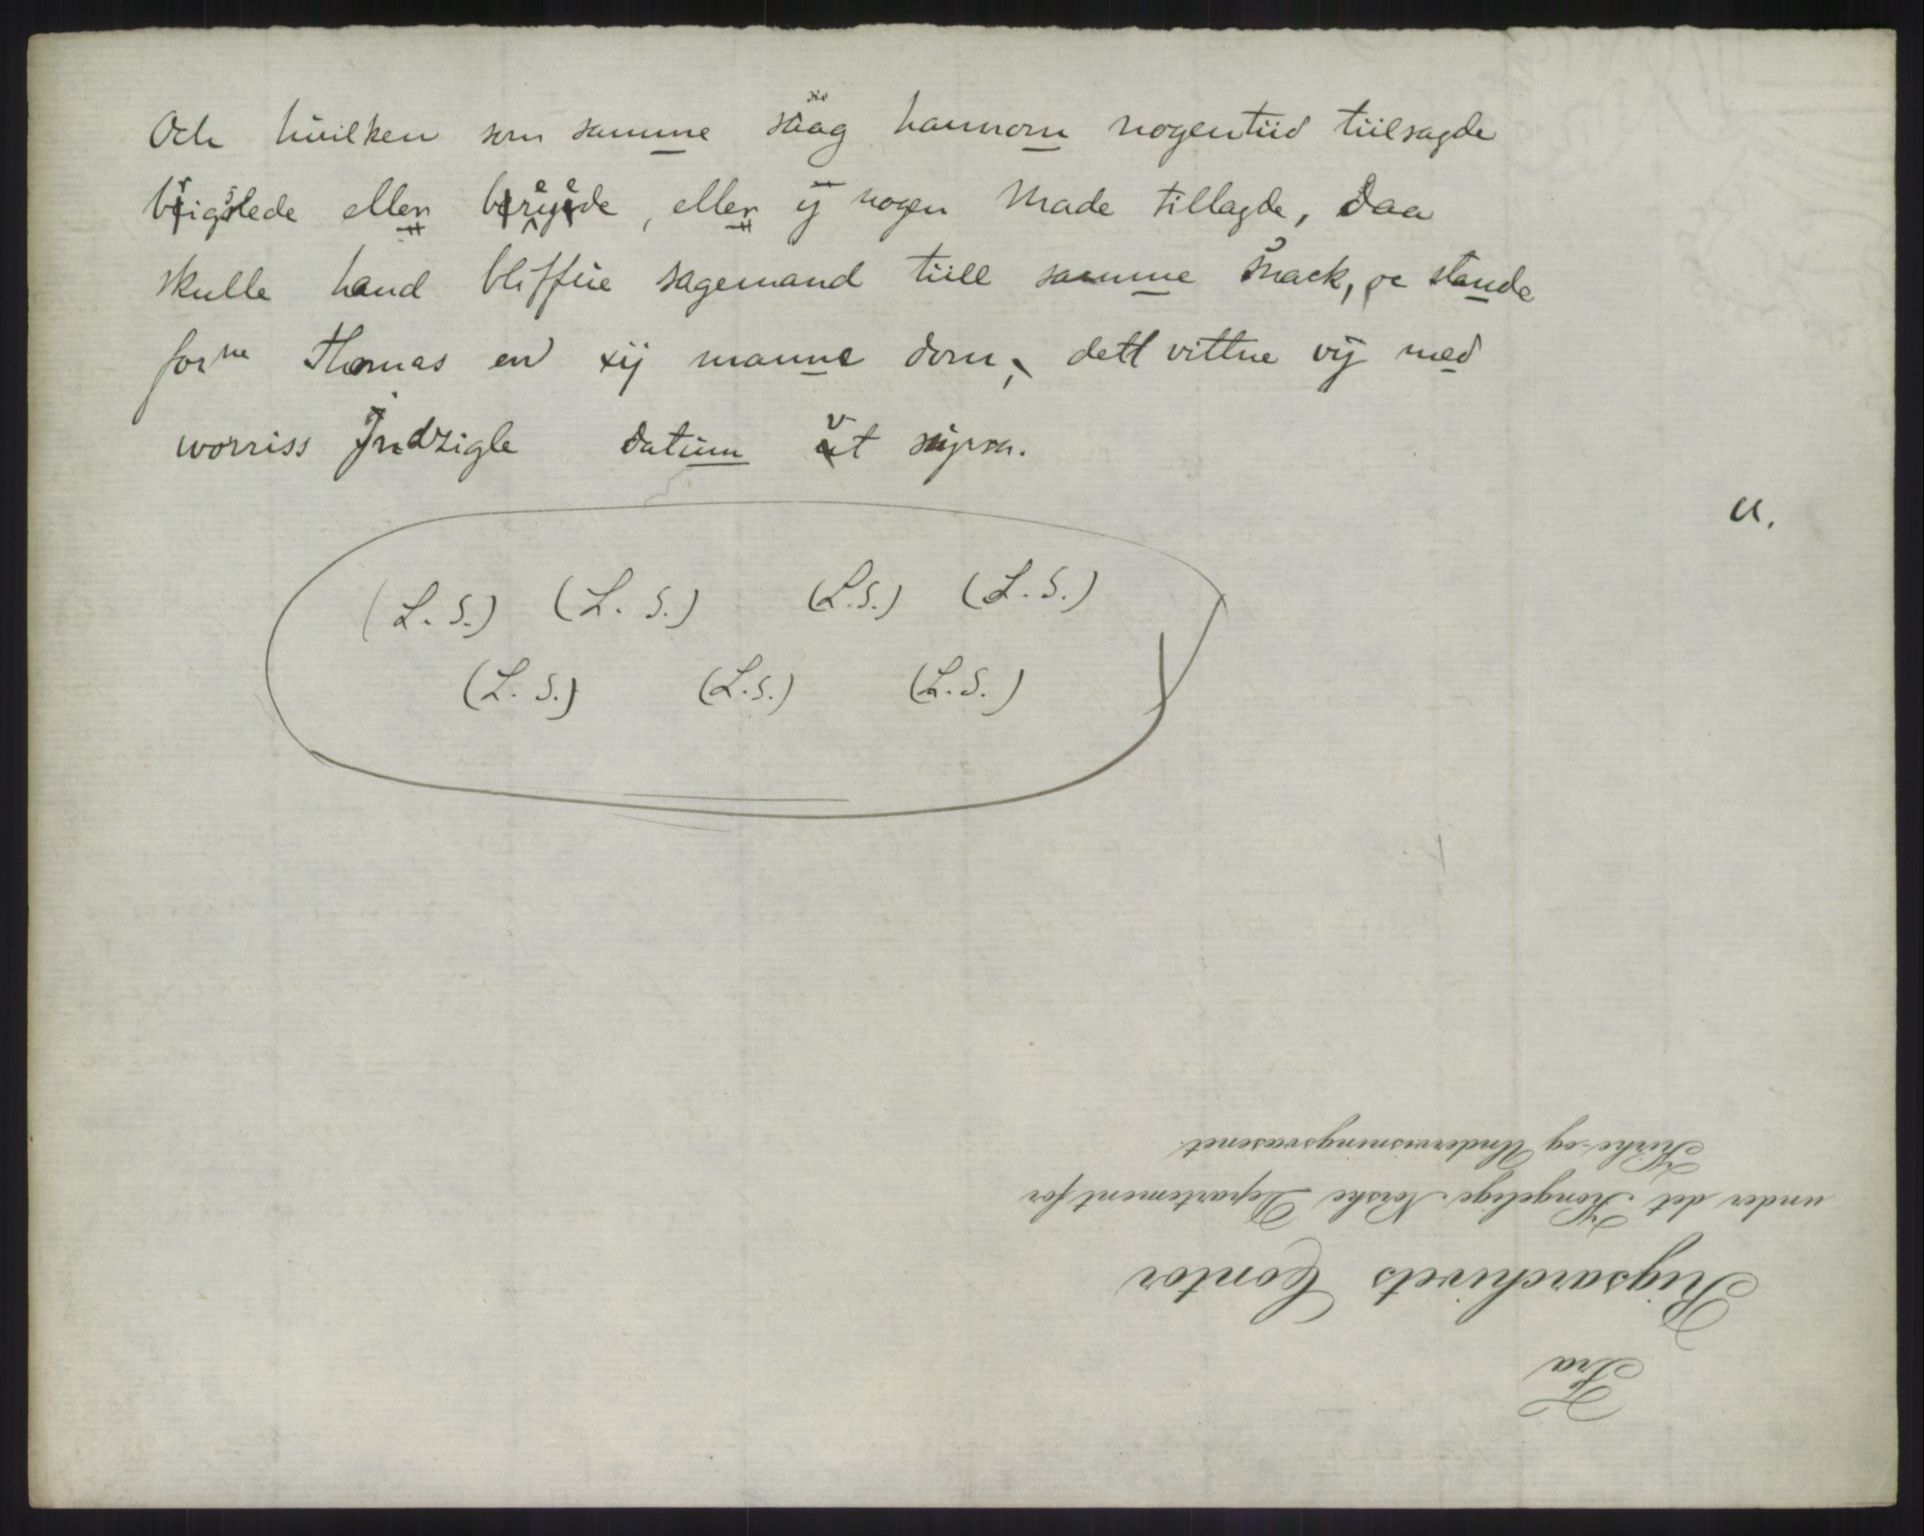 Och huilken som samme såag hannom nogentiid tiilsagde
brigslede eller berygede, eller ij nogen Made tillagde, daa
skulle hand bliffue sagemand tiill samme snack, oc stande
forne Thomas en xij manne dom, dett vittne vij med
worriss Jndzigle datum vt supra.
U.
(L. S.) (L. S.) (L.S.) (L. S.)
(L. S.) (L.S.) (L.S.)
Fra
Rigsarchivets Contor
under det Kongelige Norske Departement for
Kirke- og Undervisningsvæsenet